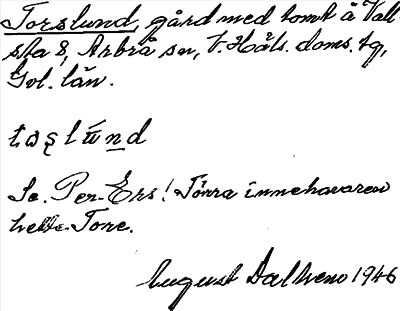 Torslund, gård med tomt å Vall-
sta 8, Arbrå sn, V. Häls. doms. tg,
Gvl. län.
Se. Per-Ers! Förra innehavaren
hette Tore.
August Dalheno 1946